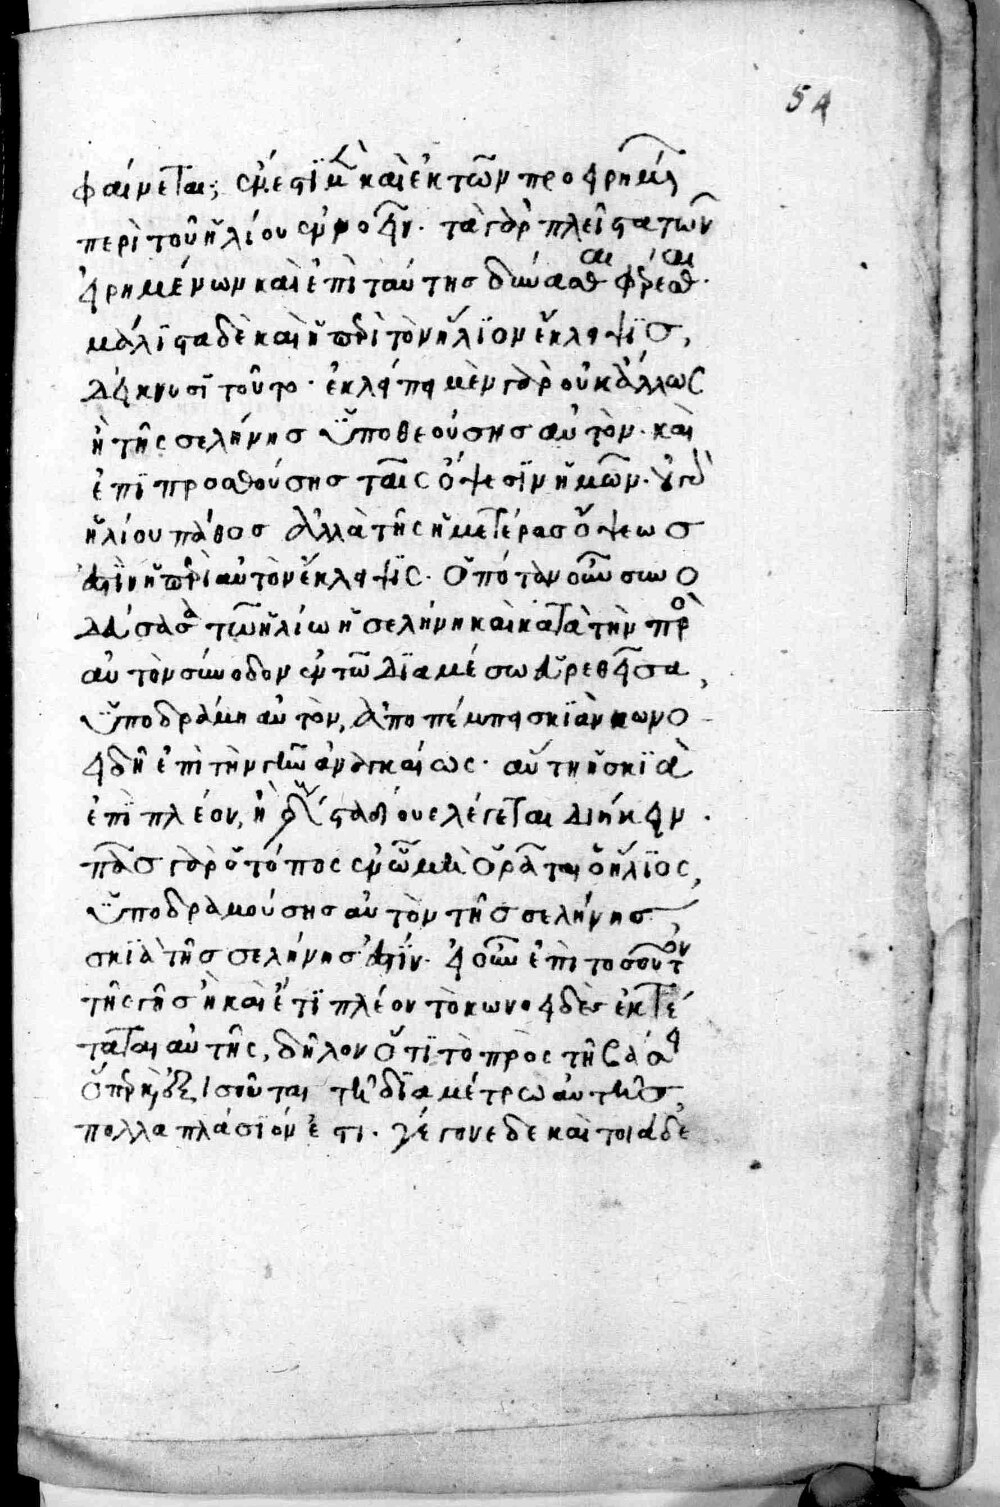 54
φαίνεται; ἔνεστι μὲν καὶ ἐκ τῶν προειρημένων
περὶ τοῦ ἡλίου ἐννοεῖν. τὰ γὰρ πλεῖστα τῶν
εἰρημένων καὶ ἐπὶ ταύτης δύνασθαι φέρεσθαι.
μάλιστα δὲ καὶ ἡ περὶ τὸν ἥλιον ἔκλειψις,
δείκνυσι τοῦτο. ἐκλείπει μὲν γὰρ οὐκ ἄλλως
ἢ τῆς σελήνης ὑποθεούσης αὐτὸν. καὶ
ἐπιπροσθούσης ταῖς ὄψεσιν ἡμῶν. οὐ γὰρ
ἡλίου πάθος ἀλλὰ τῆς ἡμετέρας ὄψεως
ἐστὶν ἡ περὶ αὐτὸν ἔκλειψις. ὁπόταν οὖν συνο
δεύσασα τῶ ἡλίω ἡ σελήνη καὶ κατὰ τὴν πρὸς
αὐτὸν σύνοδον ἐν τῶ διαμέσω εὑρεθεῖσα,
ὑποδράμη αὐτὸν, ἀποπέμπει σκιὰν κωνο-
ειδῆ ἐπὶ τὴν γῆν ἀναγκαίως. αὕτη ἡ σκιὰ
ἐπὶ πλέον, ἢ σταδίους λέγεται διήκειν.
πᾶς γὰρ ὁ τόπος ἐν ὧ μὴ ὁρᾶται ὁ ἥλιος,
ὑποδραμούσης αὐτὸν τῆς σελήνης
σκιὰ τῆς σελήνης ἐστίν. εἰ οὖν ἐπὶ τοσοῦτον
τῆς γῆς ἢ καὶ ἔτι πλέον τὸ κωνοειδὲς ἐκτέ
ταται αὐτῆς, δῆλον ὅτι τὸ πρὸς τῆ βάσει
ὅπερ καὶ ἐξισοῦται τῆ διαμέτρω αὐτῆς,
πολλαπλάσιόν ἐστι. γέγονε δὲ καὶ τοιάδε